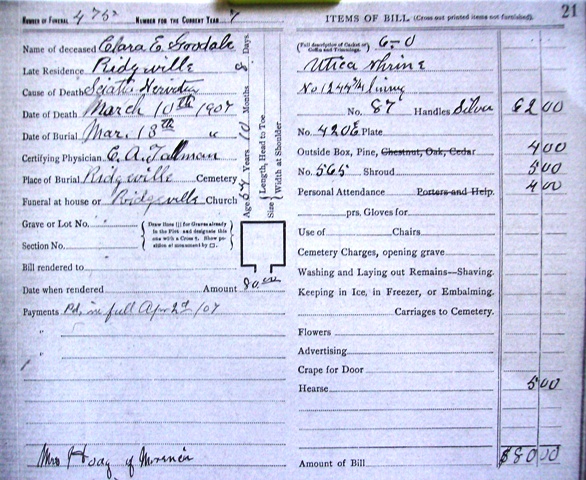 NUMBER OF FUNERAL 475 NUMBER FOR THE CURRENT YEAR 7
Name of deceased Clara E. Goodale
Late Residence Ridgeville
Cause of Death Sciatic
Date of Death March 10th 1907
Date of Burial Mar. 13th "
Certifying Physician C. A. Tallman
Place of Burial Ridgeville Cemetery
Funeral at house or Ridgeville Church
Grave or Lot No.
Section No.
Draw lines for Graves already in the Plot and designate this one with a Cross †. Show position of monument by □.
Bill rendered to
Date when rendered Amount 80.00
Payments Pd. in full Apr 2d /07
"
"
Mrs Hoag of Morenci
Age 64 Years 10 Months 8 Days.
Size { Length, Head to Toe
Width at Shoulder
ITEMS OF BILL (Cross out printed items not furnished). 21
(Full description of Casket or Coffin and Trimmings.) 6-0
Utica Shrine
No 1244 lining
No. 87 Handles Silver 62 00
No. 420E Plate
Outside Box, Pine, Chestnut, Oak, Cedar 4 00
No. 565 Shroud 5 00
Personal Attendance Porters and Help. 4 00
prs. Gloves for
Use of Chairs
Cemetery Charges, opening grave
Washing and Laying out Remains—Shaving.
Keeping in Ice, in Freezer, or Embalming.
Carriages to Cemetery.
Flowers
Advertising
Crape for Door
Hearse 5 00
Amount of Bill $80 00